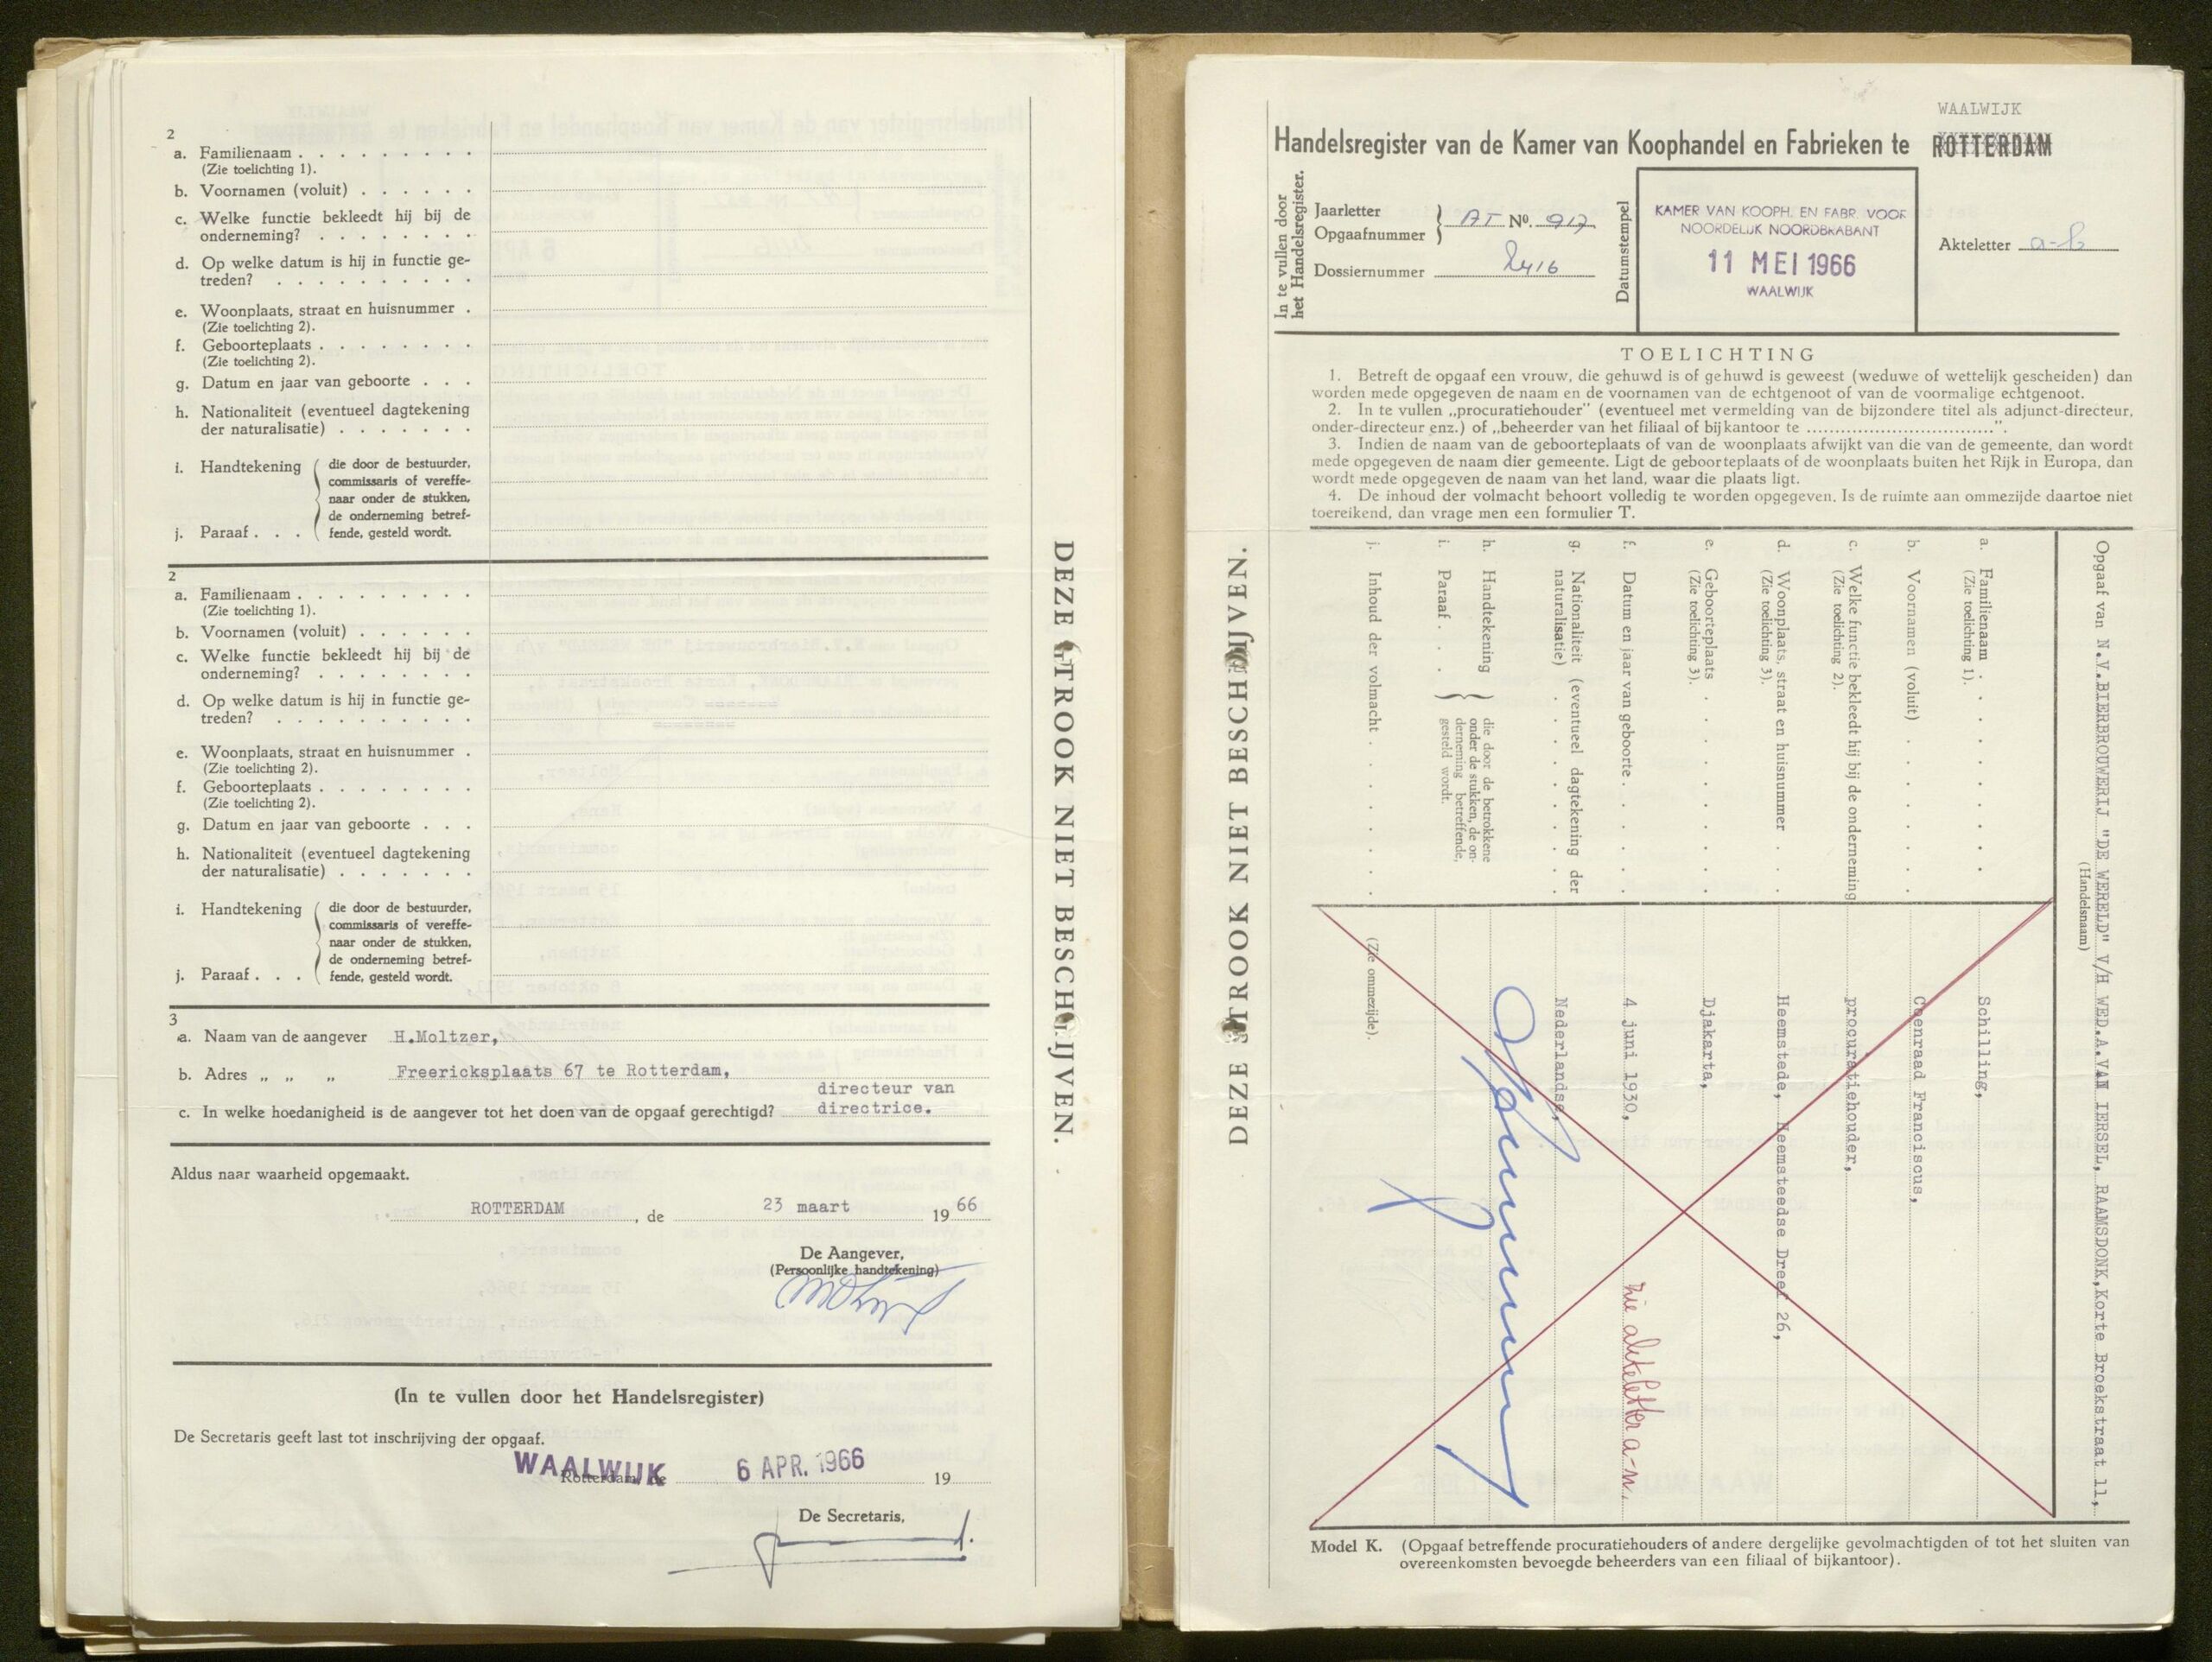 2
a. Familienaam . . . . . . . . .
(Zie toelichting 1).
b. Voornamen (voluit) . . . . . .
c. Welke functie bekleedt hij bij de
onderneming? . . . . . . . .
d. Op welke datum is hij in functie ge-
treden? . . . . . . . . . .
e. Woonplaats, straat en huisnummer .
(Zie toelichting 2).
f. Geboorteplaats . . . . . . . .
(Zie toelichting 2).
g. Datum en jaar van geboorte . . .
h. Nationaliteit (eventueel dagtekening
der naturalisatie) . . . . . . .
i. Handtekening
die door de bestuurder,
commissaris of vereffe-
naar onder de stukken,
de onderneming betref-
j. Paraaf . . . fende, gesteld wordt.
2
a. Familienaam . . . . . . . . .
(Zie toelichting 1).
b. Voornamen (voluit) . . . . . .
c. Welke functie bekleedt hij bij de
onderneming? . . . . . . . .
d. Op welke datum is hij in functie ge-
treden? . . . . . . . . . .
e. Woonplaats, straat en huisnummer .
(Zie toelichting 2).
f. Geboorteplaats . . . . . . . .
(Zie toelichting 2).
g. Datum en jaar van geboorte . . .
h. Nationaliteit (eventueel dagtekening
der naturalisatie) . . . . . . .
i. Handtekening die door de bestuurder,
commissaris of vereffe-
naar onder de stukken,
de onderneming betref-
j. Paraaf . . . fende, gesteld wordt.
3
a. Naam van de aangever H.Moltzer,
b. Adres „ „ „ Freericksplaats 67 te Rotterdam,
directeur van
c. In welke hoedanigheid is de aangever tot het doen van de opgaaf gerechtigd? directrice.
Aldus naar waarheid opgemaakt.
ROTTERDAM , de 23 maart 19 66
De Aangever,
(Persoonlijke handtekening)
(In te vullen door het Handelsregister)
De Secretaris geeft last tot inschrijving der opgaaf.
WAALWIJK
Rotterdam, de 6 APR. 1966 19
De Secretaris,
DEZE STROOK NIET BESCHRIJVEN.
DEZE STROOK NIET BESCHRIJVEN.
WAALWIJK
Handelsregister van de Kamer van Koophandel en Fabrieken te ROTTERDAM
In te vullen door
het Handelsregister.
Jaarletter
Opgaafnummer
AT No. 917
Dossiernummer 2416
Datumstempel
KAMER VAN KOOPH. EN FABR. VOOR
NOORDELIJK NOORDBRABANT
11 MEI 1966
WAALWIJK
Akteletter a-b
TOELICHTING
1. Betreft de opgaaf een vrouw, die gehuwd is of gehuwd is geweest (weduwe of wettelijk gescheiden) dan
worden mede opgegeven de naam en de voornamen van de echtgenoot of van de voormalige echtgenoot.
2. In te vullen „procuratiehouder” (eventueel met vermelding van de bijzondere titel als adjunct-directeur,
onder-directeur enz.) of „beheerder van het filiaal of bijkantoor te ................................”.
3. Indien de naam van de geboorteplaats of van de woonplaats afwijkt van die van de gemeente, dan wordt
mede opgegeven de naam dier gemeente. Ligt de geboorteplaats of de woonplaats buiten het Rijk in Europa, dan
wordt mede opgegeven de naam van het land, waar die plaats ligt.
4. De inhoud der volmacht behoort volledig te worden opgegeven. Is de ruimte aan ommezijde daartoe niet
toereikend, dan vrage men een formulier T.
Opgaaf van N.V.BIERBROUWERIJ "DE WERELD" V/H WED.A.VAN IERSEL, RAAMSDONK,Korte Broekstraat 11,
(Handelsnaam)
a. Familienaam . . . . . . . . . Schilling,
(Zie toelichting 1).
b. Voornamen (voluit) . . . . . . Coenraad Franciscus,
c. Welke functie bekleedt hij bij de onderneming procuratiehouder,
(Zie toelichting 2).
d. Woonplaats, straat en huisnummer . . Heemstede, Heemsteedse Dreef 26,
(Zie toelichting 3).
e. Geboorteplaats . . . . . . . . Djakarta,
(Zie toelichting 3).
f. Datum en jaar van geboorte . . . . 4 juni 1930,
zie akteletter a-n.
g. Nationaliteit (eventueel dagtekening der
naturalisatie) . . . . . . . . Nederlandse,
h. Handtekening
die door de betrokkene
onder de stukken, de on-
derneming betreffende,
gesteld wordt.
i. Paraaf . . .
j. Inhoud der volmacht . . . . . . (Zie ommezijde).
Model K. (Opgaaf betreffende procuratiehouders of andere dergelijke gevolmachtigden of tot het sluiten van
overeenkomsten bevoegde beheerders van een filiaal of bijkantoor).